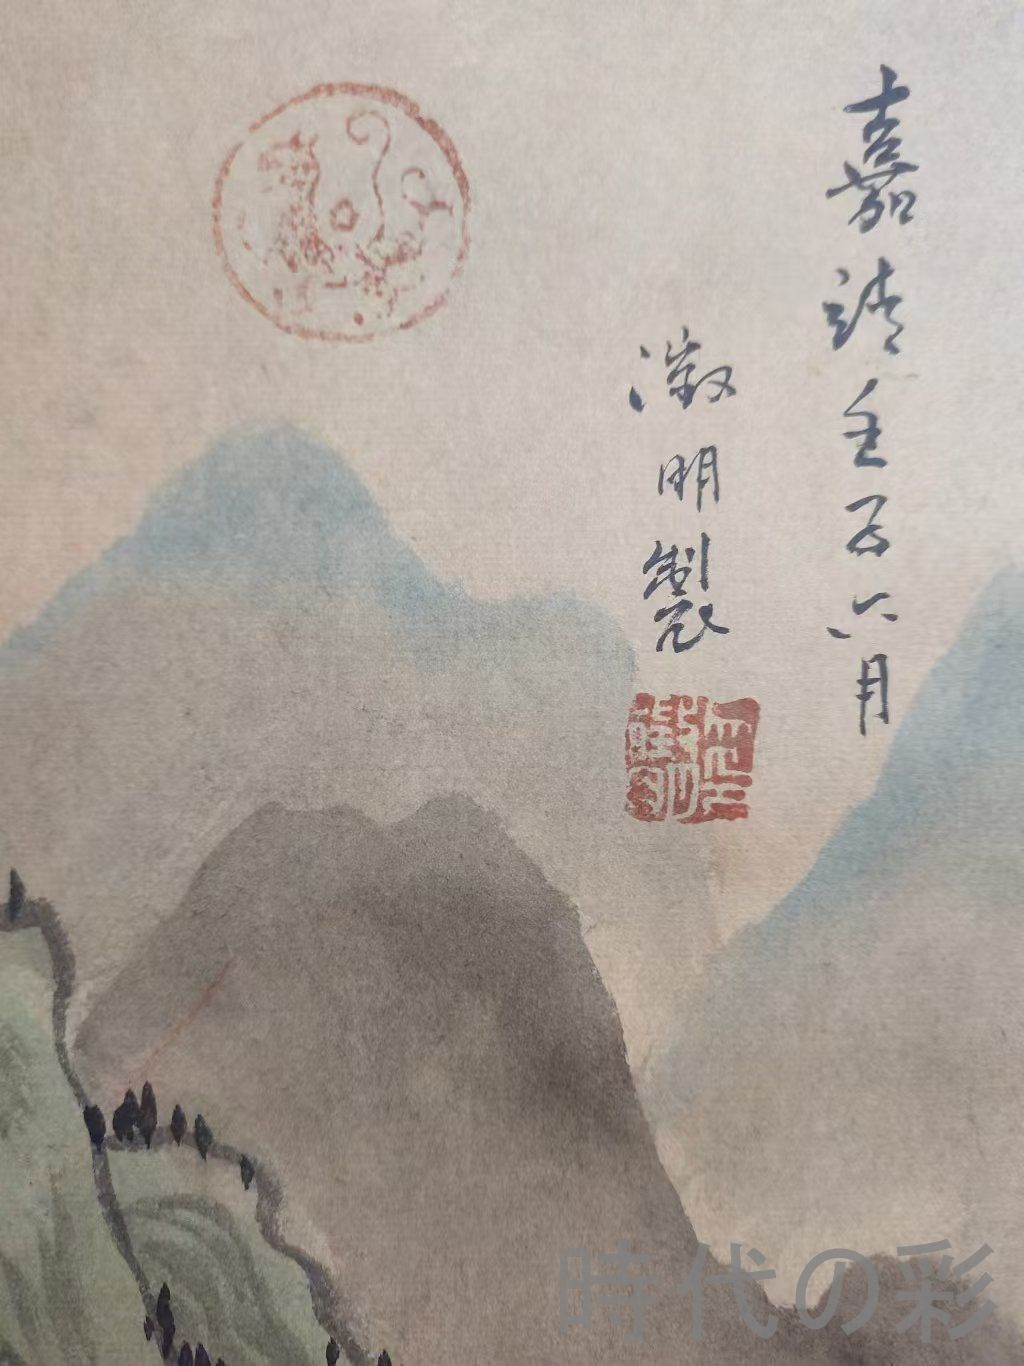 嘉靖壬子六月
徵明製
時代の彩